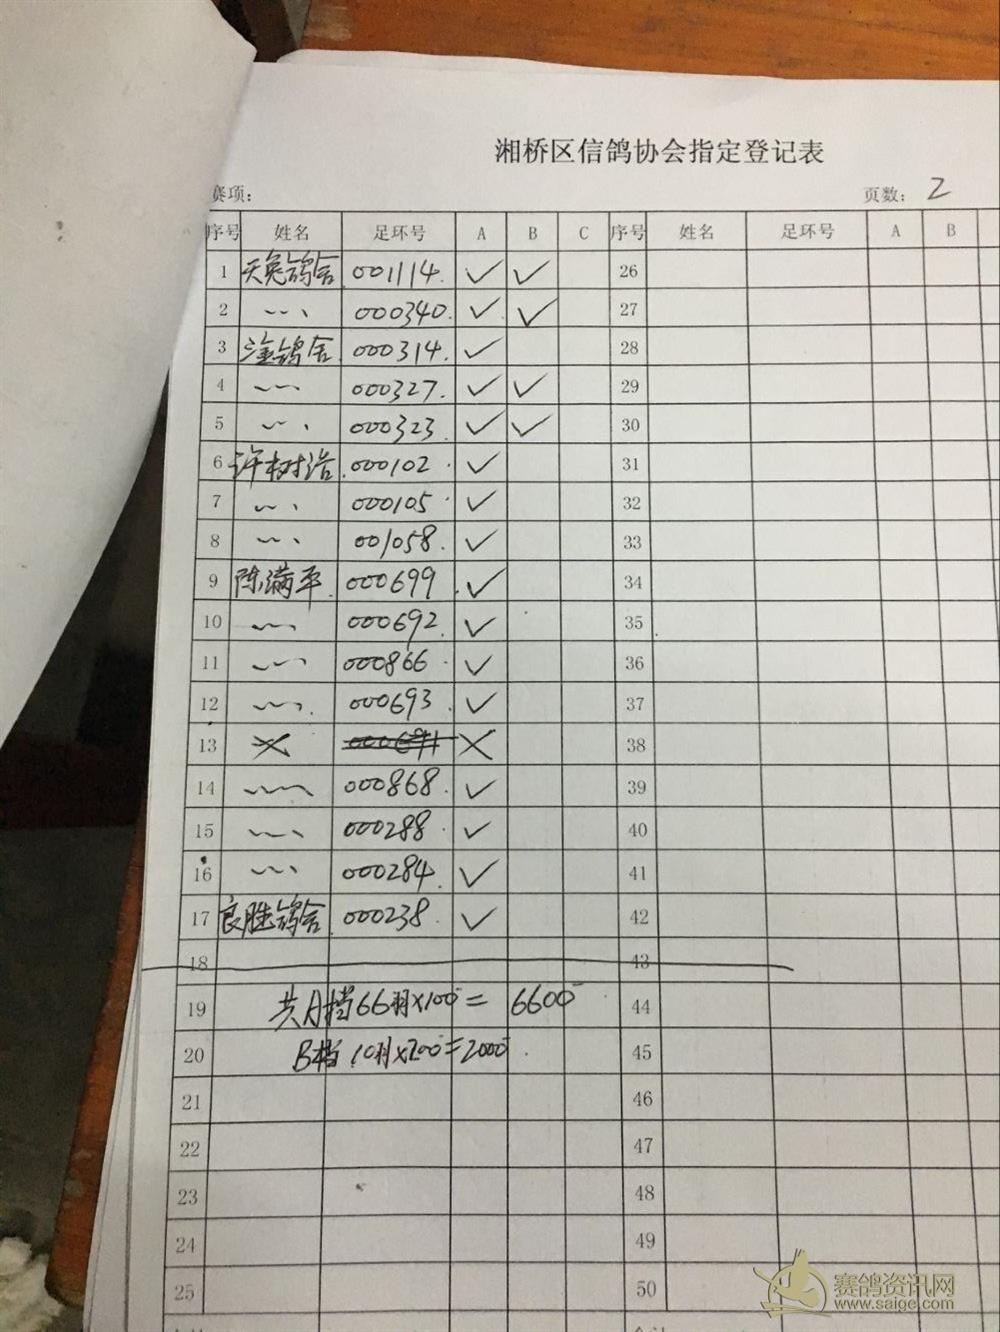 湘桥区信鸽协会指定登记表
赛项： 页数：2
序号 姓名 足环号 A B C 序号 姓名 足环号 A B
1 天兔鸽舍 001114 ✓ ✓ 26
2 000340 ✓ ✓ 27
3 鸽舍 000314 ✓ 28
4 000327 ✓ ✓ 29
5 000323 ✓ ✓ 30
6 许树浩 000102 ✓ 31
7 000105 ✓ 32
8 001058 ✓ 33
9 陈满平 000699 ✓ 34
10 000692 ✓ 35
11 000866 ✓ 36
12 000693 ✓ 37
13 × 000691 × 38
14 000868 ✓ 39
15 000288 ✓ 40
16 000284 ✓ 41
17 良胜鸽舍 000238 ✓ 42
18 43
19 共A档66羽×100=6600 44
20 B档10羽×200=2000 45
21 46
22 47
23 48
24 49
25 50
赛鸽资讯网
www.saige.com